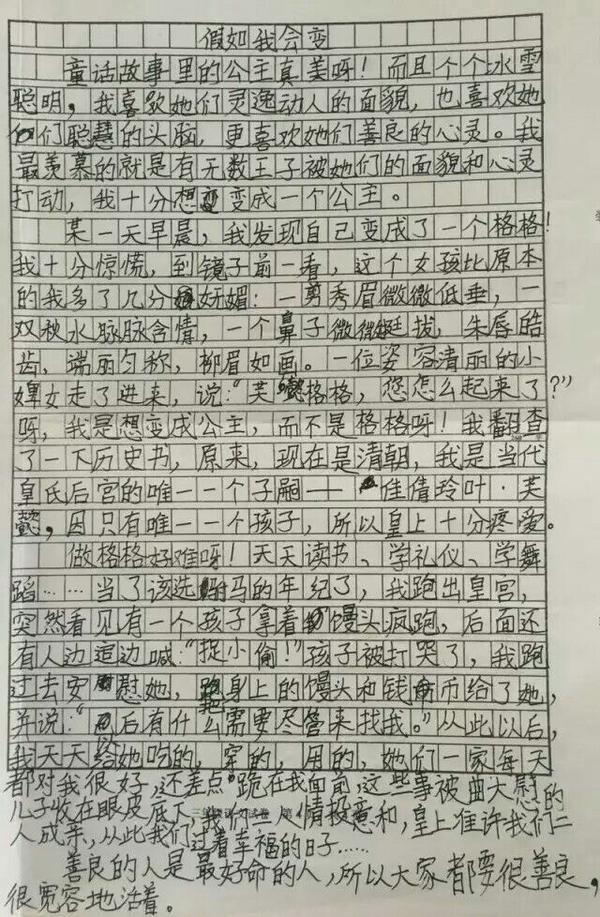 假如我会变
童话故事里的公主真美呀！而且个个冰雪
聪明，我喜欢她们灵逸动人的面貌，也喜欢她
们聪慧的头脑，更喜欢她们善良的心灵。我
最羡慕的就是有无数王子被她们的面貌和心灵
打动，我十分想变成一个公主。
某一天早晨，我发现自己变成了一个格格！
我十分惊慌，到镜子前一看，这个女孩比原本
的我多了几分妩媚：一剪秀眉微微低垂，一
双秋水脉脉含情，一个鼻子微微挺拔，朱唇皓
齿，端丽匀称，柳眉如画。一位姿容清丽的小
婢女走了进来，说：“芙懿格格，您怎么起来了？”
呀，我是想变成公主，而不是格格呀！我翻查
了一下历史书，原来，现在是清朝，我是当代
皇氏后宫的唯一一个子嗣——佳倩玲叶·芙
懿，因只有唯一一个孩子，所以皇上十分疼爱。
做格格好难呀！天天读书、学礼仪、学舞
蹈……当了该选驸马的年纪了，我跑出皇宫，
突然看见有一个孩子拿着馒头疯跑，后面还
有人边追边喊：“捉小偷！”孩子被打哭了，我跑
过去安慰她，把身上的馒头和钱币给了她，
并说：“以后有什么需要尽管来找我。”从此以后，
我天天给她吃的，穿的，用的，她们一家每天
都对我很好，还差点跪在我面前，这些事被曲大慰的
儿子收在眼皮底下，我们二人情投意和，皇上准许我们二
人成亲，从此我们过着幸福的日子……
善良的人是最好命的人，所以大家都要很善良，
很宽容地活着。